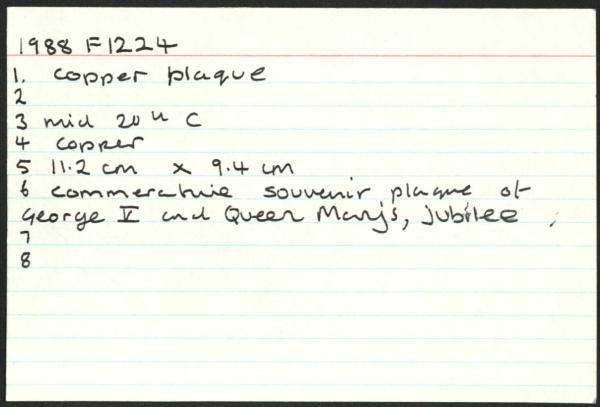 1988 F1224
1. Copper plaque
2
3 mid 20th C
4 copper
5 11.2 cm x 9.4 cm
6 commerative souvenir plaque of
George V and Queen Mary's, jubilee
7
8